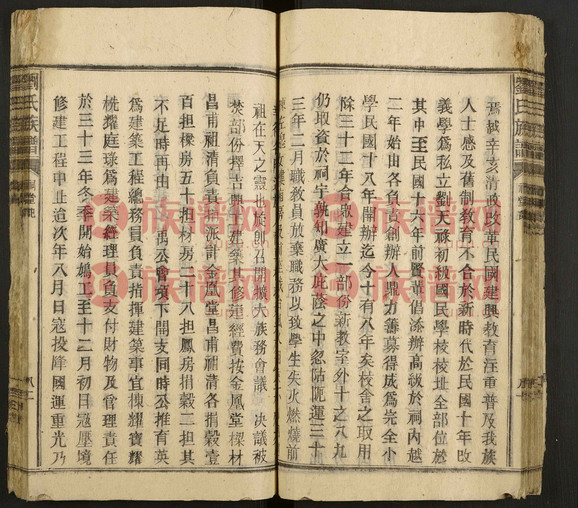 焉誠辛亥清政改革民國建興教育注重普及我族
人士感及舊制教育不合於新時代於民國十年改
義學爲私立劉天祿初級國民學校校址全部位於
其中至民國十六年前賢畢倡添辦高級於祠內越
二年始由各負責創辦人鼎力籌募得成爲完全小
學民國十八年開辦迄今十有八年矣校舍之取用
除三十二年合敬建立一部份新教室外十之八九
仍取資於祠宇孰知廣大此蔭之中忽
運三十
三年二月職教員放棄職務以致學生失火燃燒前
祖在天之靈也
即召開
大族務會議
決議被
焚部份擇吉興工建築其修建經費按金鳳堂樑材
昌甫祖清負責分派計金鳳堂昌甫祖清各捐穀壹
百担樑房五十担材房二十八担鳳房捐穀二担其
不足時再由
禹公會項下開支同時公推育英
爲建築工程總務員負責指揮建築事宜樑耀寶耀
桄耀庭琭爲建築經理員負責支付財物及管理責任
於三十三年冬季開始鳩工至十二月初日冦壓境
修建工程中止迨次年八月日冦投降國運重光乃
劉氏族譜
劉氏族譜
族谱网
族谱网